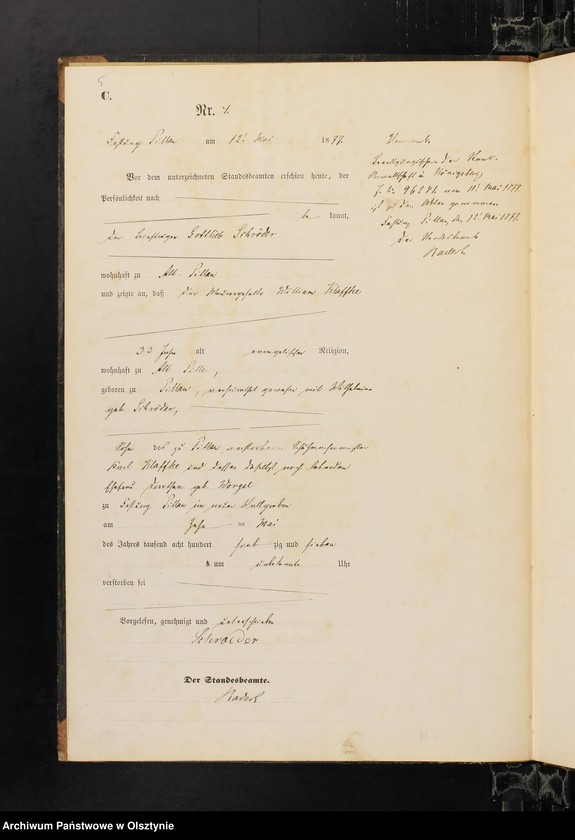 5
C.
Nr. 4.
Festung Pillau am 12. Mai 1877.
Vor dem unterzeichneten Standesbeamten erschien heute, der
Persönlichkeit nach
be kannt,
der Gottlieb Schröder
wohnhaft zu Alt Pillau
und zeigte an, daß der Maurergeselle William Klaffke
33 Jahr alt evangelischer Religion,
wohnhaft zu Alt Pillau,
geboren zu Pillau, verheirathet gewesen mit Wilhelmine
geb. Schröder,
Sohn des zu Pillau verstorbenen Schuhmachermeister
Karl Klaffke und dessen daselbst noch lebenden
Ehefrau geb. Worgel
zu Festung Pillau im neuen Wallgraben
am Zehn ten Mai
des Jahres tausend acht hundert sieb zig und sieben
um unbekannte Uhr
verstorben sei
Vorgelesen, genehmigt und unterschrieben
Schroeder
Der Standesbeamte.
Beerdigungsschein der Staats-
Anwaltschaft zu Königsberg
vom 11. Mai 1877
ist zu den Akten genommen
Festung Pillau, den 12. Mai 1877.
Der Standesbeamte
Archiwum Państwowe w Olsztynie